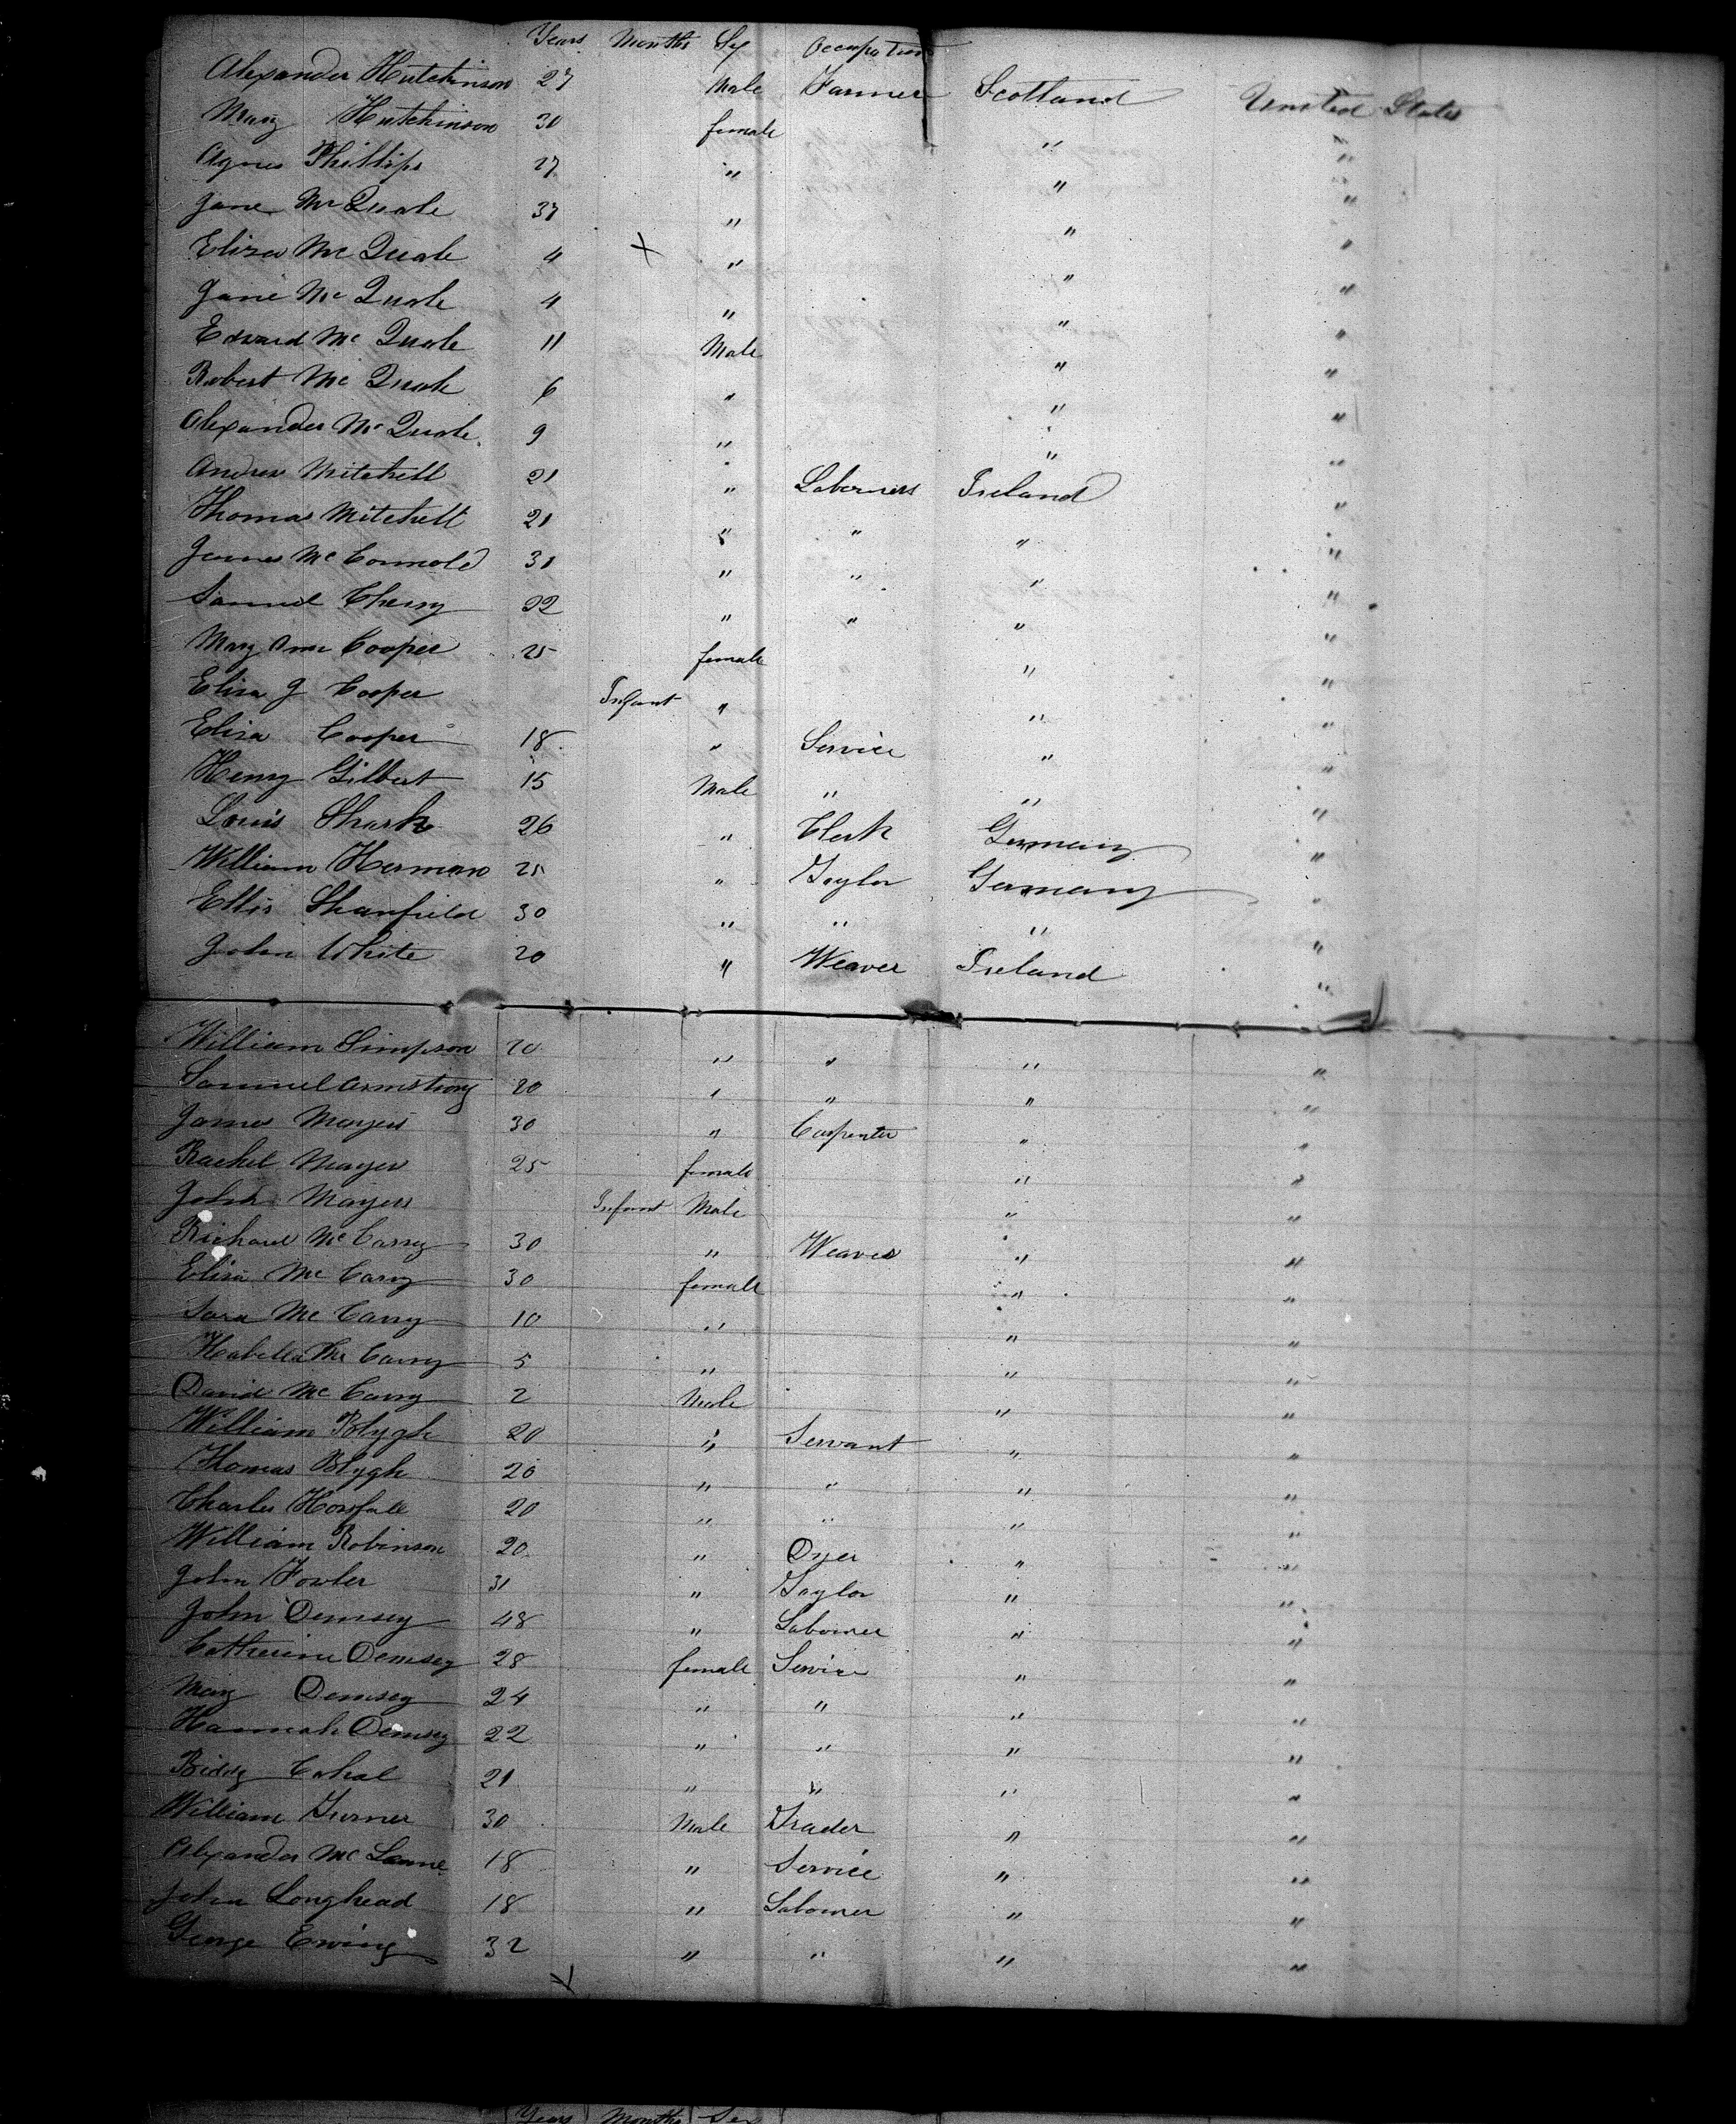 Years Months Sex Occupation
Alexander Hutchinson 27 Male Farmer Scotland United States
Mary Hutchinson 30 female " "
Agnes Phillips 27 " " "
Jane Mc Quale 37 " " "
Eliza Mc Quale 4 " " "
Jane Mc Quale 4 " " "
Edward Mc Quale 11 Male " "
Robert Mc Quale 6 " " "
Alexander Mc Quale 9 " " "
Andrew Mitchell 21 " Ireland "
Thomas Mitchell 21 " " " "
James Mc 31 " " " "
Samuel Cherry 22 " " " "
Mary Ann Cooper 25 female " "
Eliza J Cooper Infant " " "
Eliza Cooper 18 " Service " "
Henry Gilbert 15 Male " " "
Louis 26 " Clerk Germany "
William Herman 25 " Taylor Germany "
Ellis Shanfield 30 " " " "
John White 20 " Weaver Ireland "
William Simpson 20 " " " "
Samuel Armstrong 20 " " " "
James Mayers 30 " Carpenter " "
Rachel Mayers 25 female " "
John Mayers Infant Male " "
Richard Mc Carry 30 " Weaver " "
Eliza Mc Carry 30 female " "
Sara Mc Carry 10 " " "
Mc Carry 5 " " "
David Mc Carry 2 Male " "
William Blygh 20 " Servant " "
Thomas Blygh 20 " " " "
Charles Horsfall 20 " " " "
William Robinson 20 " Dyer " "
John Fowler 31 " Taylor " "
John Demsey 48 " Labourer " "
Catherine Demsey 28 female Service " "
Mary Demsey 24 " " " "
Hannah Demsey 22 " " " "
Biddy Cahal 21 " " " "
William Turner 30 Male Trader " "
Alexander Mc 18 " Service " "
John Longhead 18 " Labourer " "
George Ewing 32 " " " "
Years Months Sex